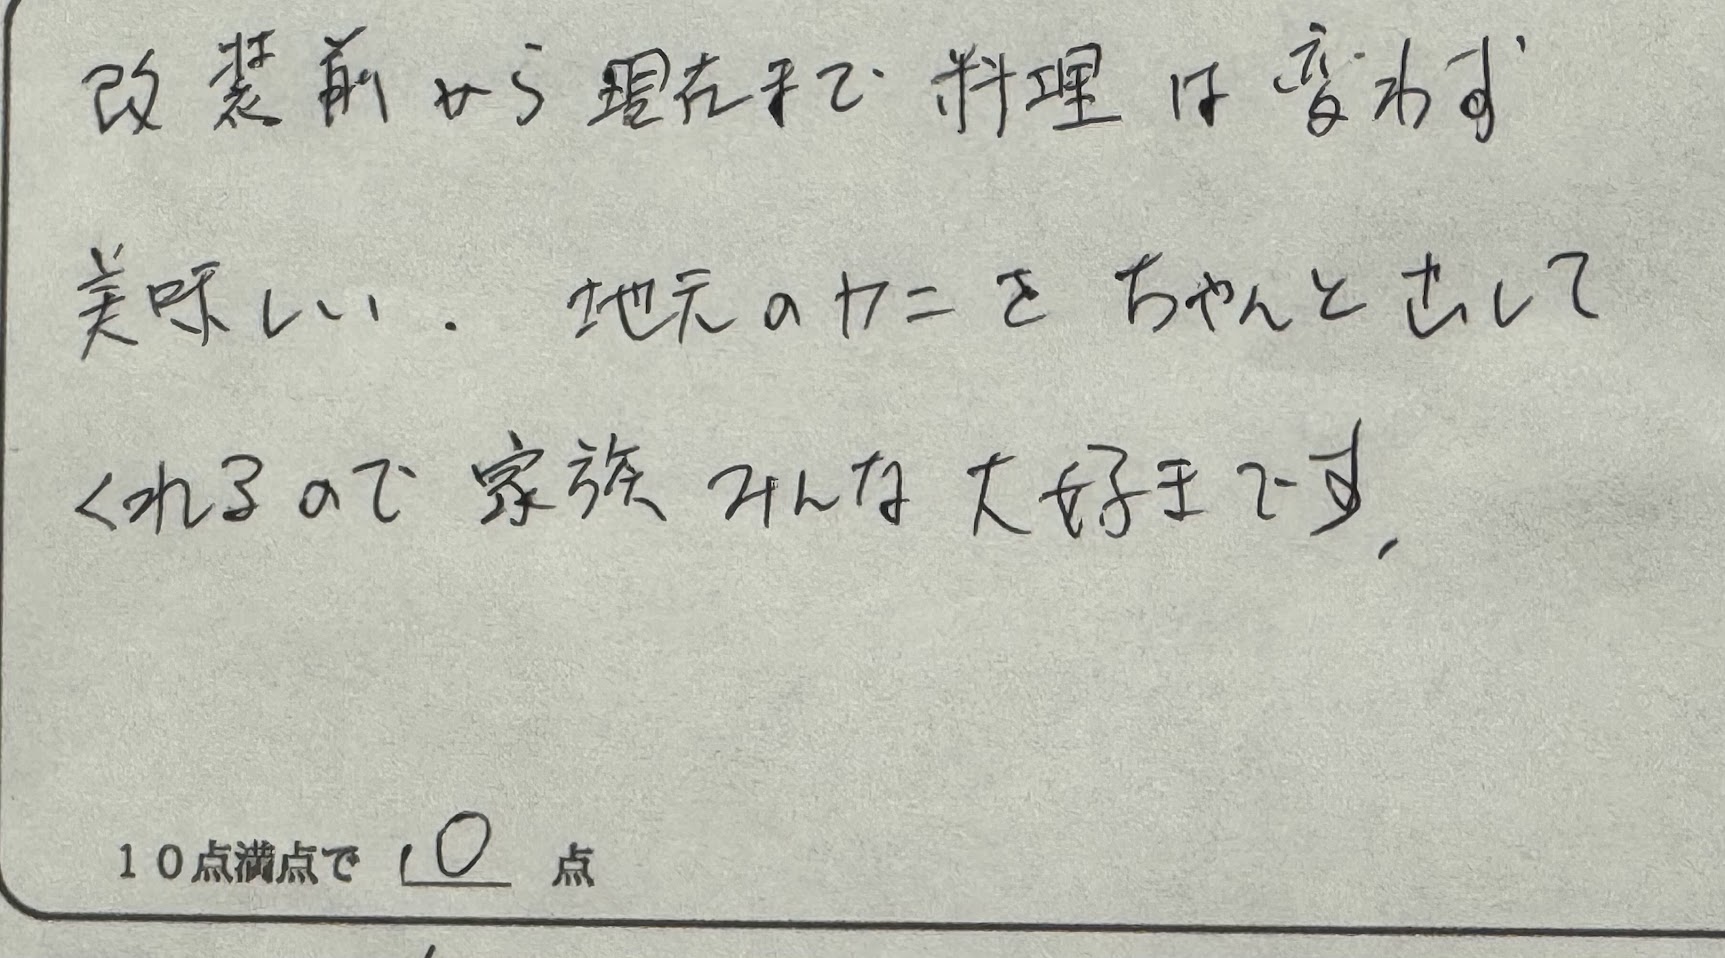 改装前から現在まで料理は変わらず
美味しい. 地元のカニをちゃんと出して
くれるので家族みんな大好きです,
10点満点で 10 点